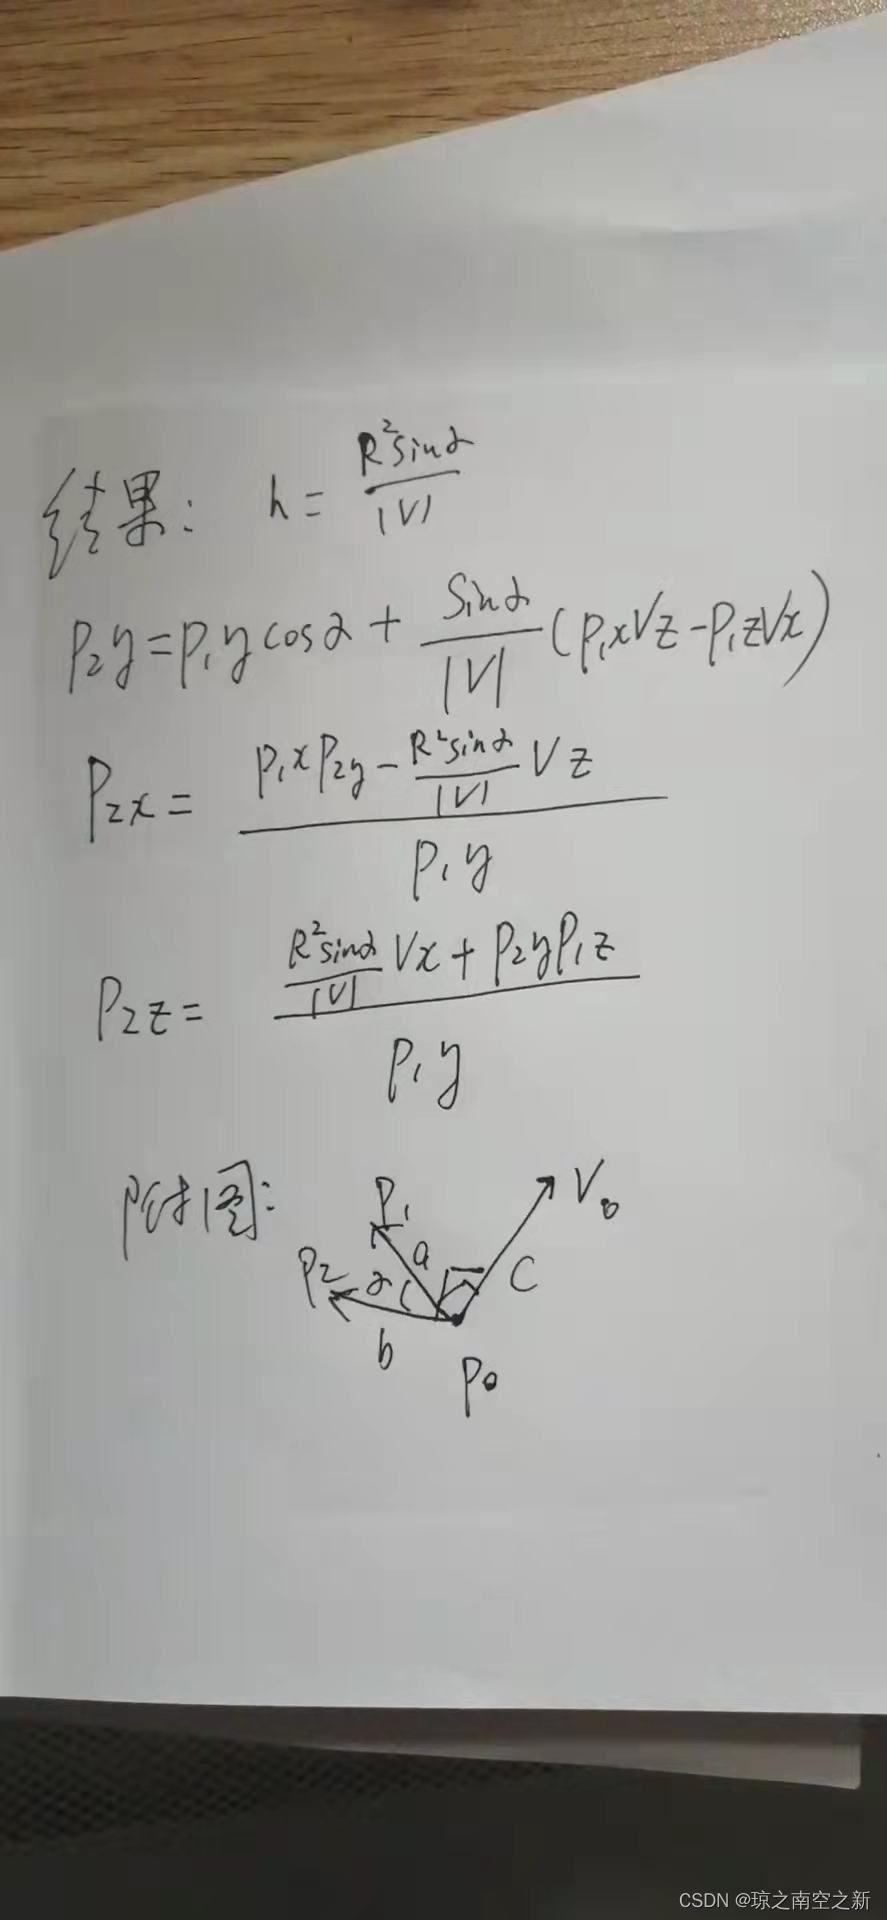 结果: h = R²sinα / |V|
P₂y = P₁y cosα + sinα / |V| (P₁xVz - P₁zVx)
P₂x = (P₁xP₂y - R²sinα / |V| Vz) / P₁y
P₂z = (R²sinα / |V| Vx + P₂yP₁z) / P₁y
附图:
P₁
V₀
P₂
α
a
C
b
P₀
CSDN @琼之南空之新